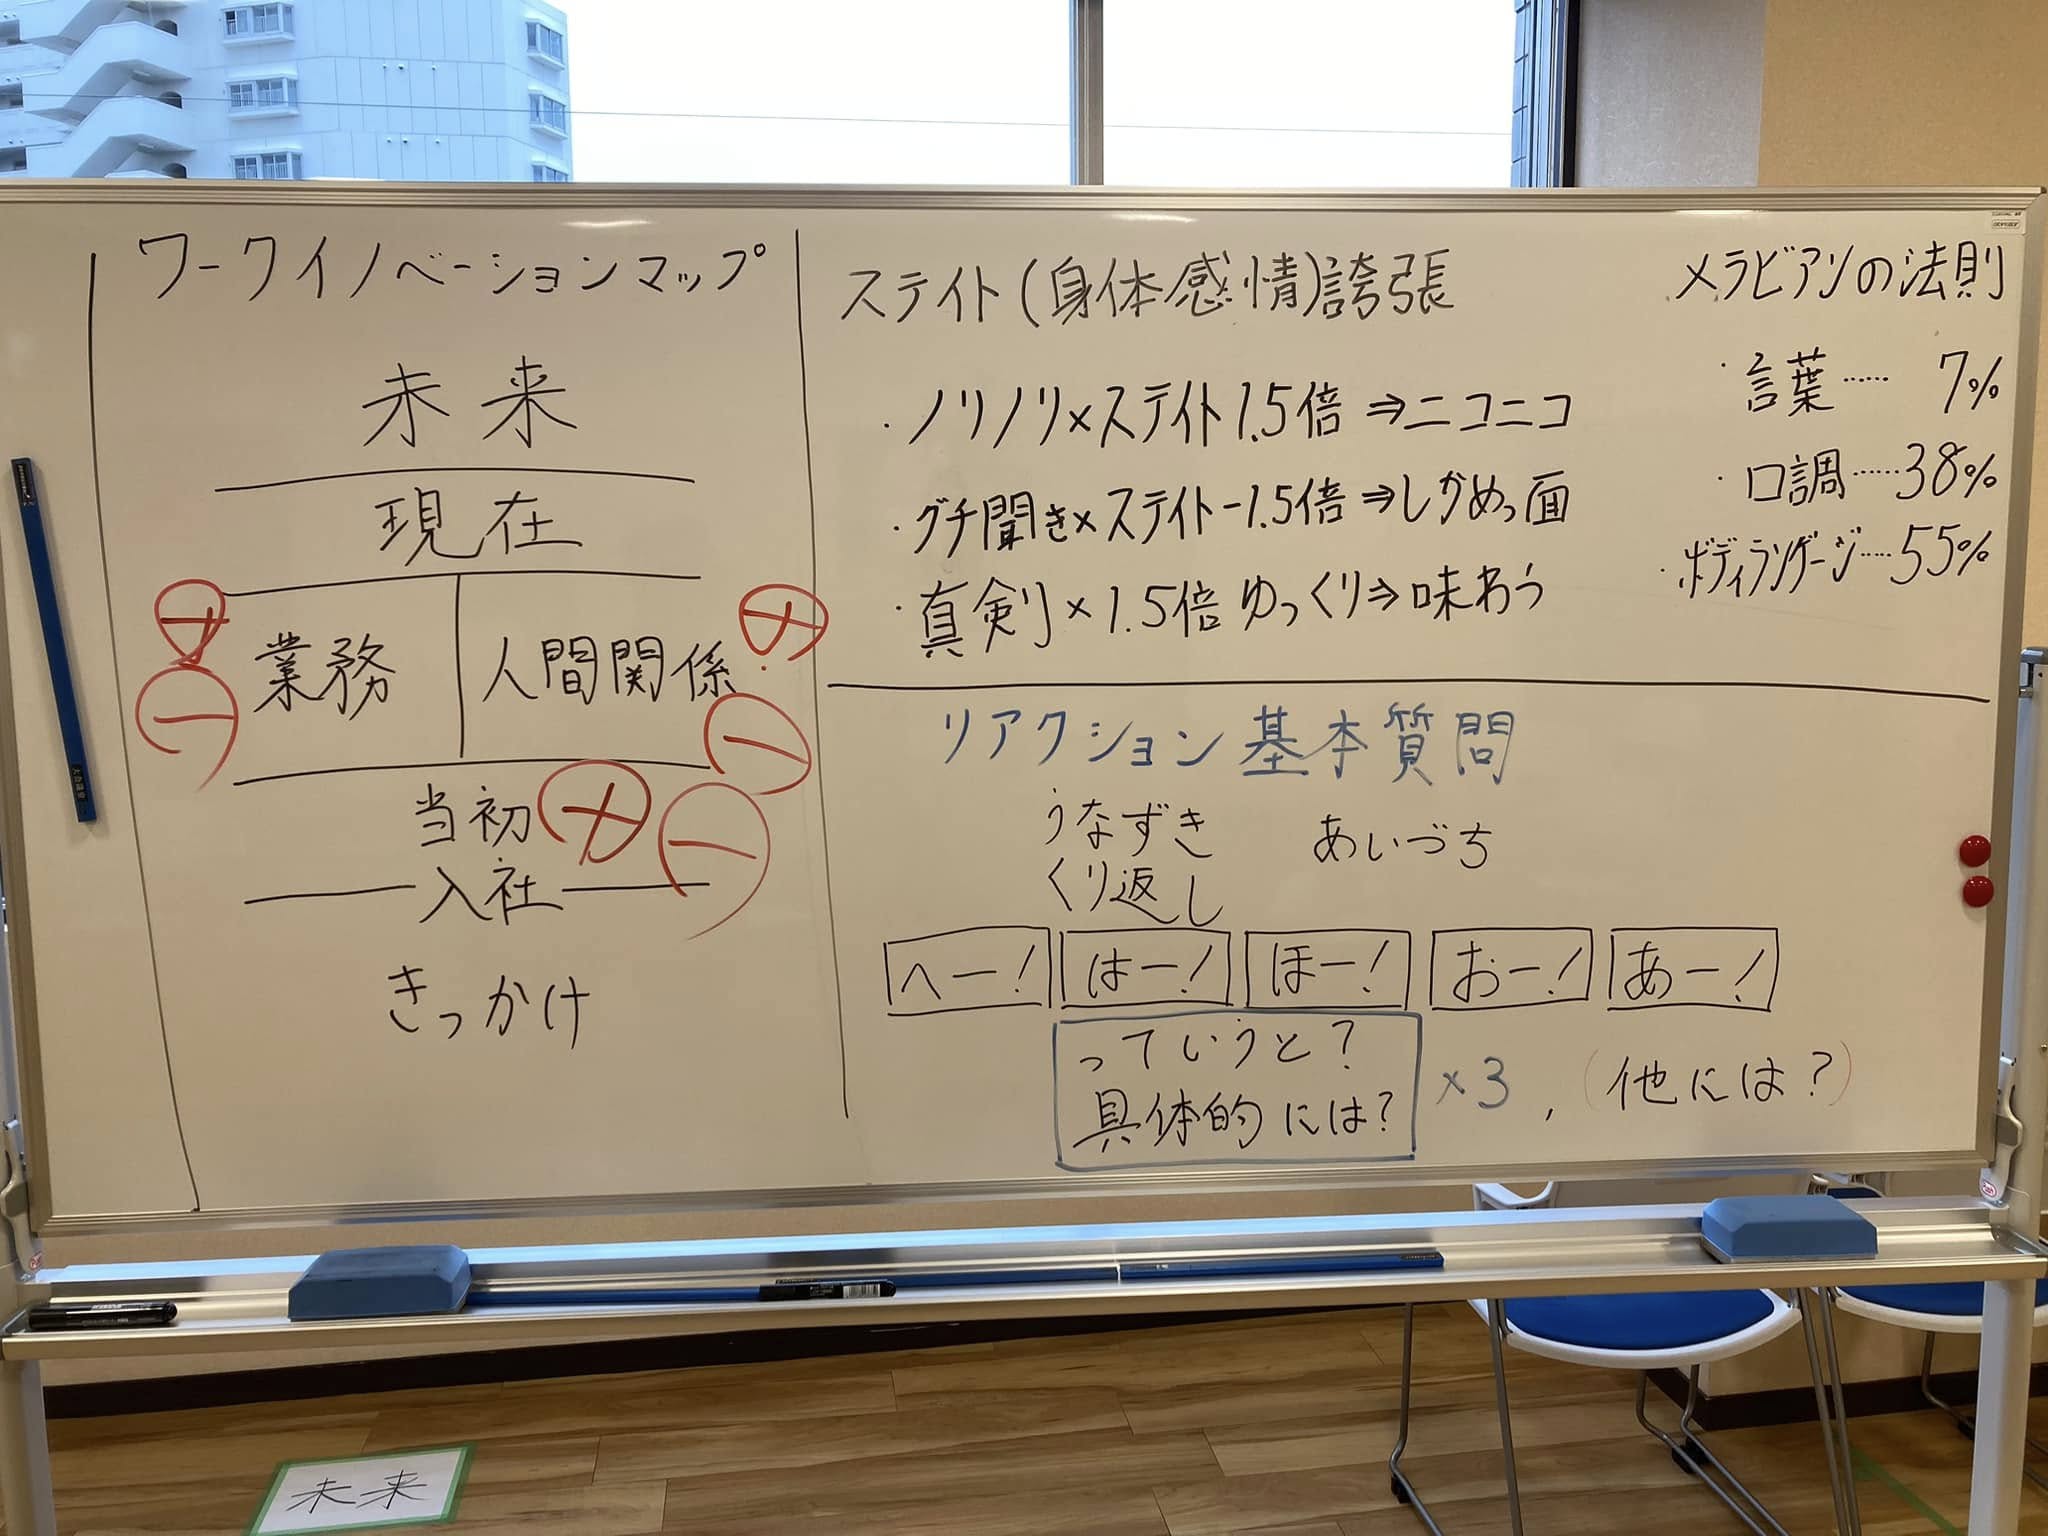 ワークイノベーションマップ
未来
現在
＋
業務
人間関係
＋
－
－
当初
＋
－
入社
きっかけ
ステイト(身体感情)誇張
・ノリノリ×ステイト1.5倍⇒ニコニコ
・グチ聞き×ステイト-1.5倍⇒しかめっ面
・真剣×1.5倍ゆっくり⇒味わう
メラビアンの法則
・言葉…… 7%
・口調……38%
・ボディランゲージ……55%
リアクション基本質問
うなずき あいづち
くり返し
へー! はー! ほー! おー! あー!
っていうと?
具体的には?
×3,(他には?)
未来